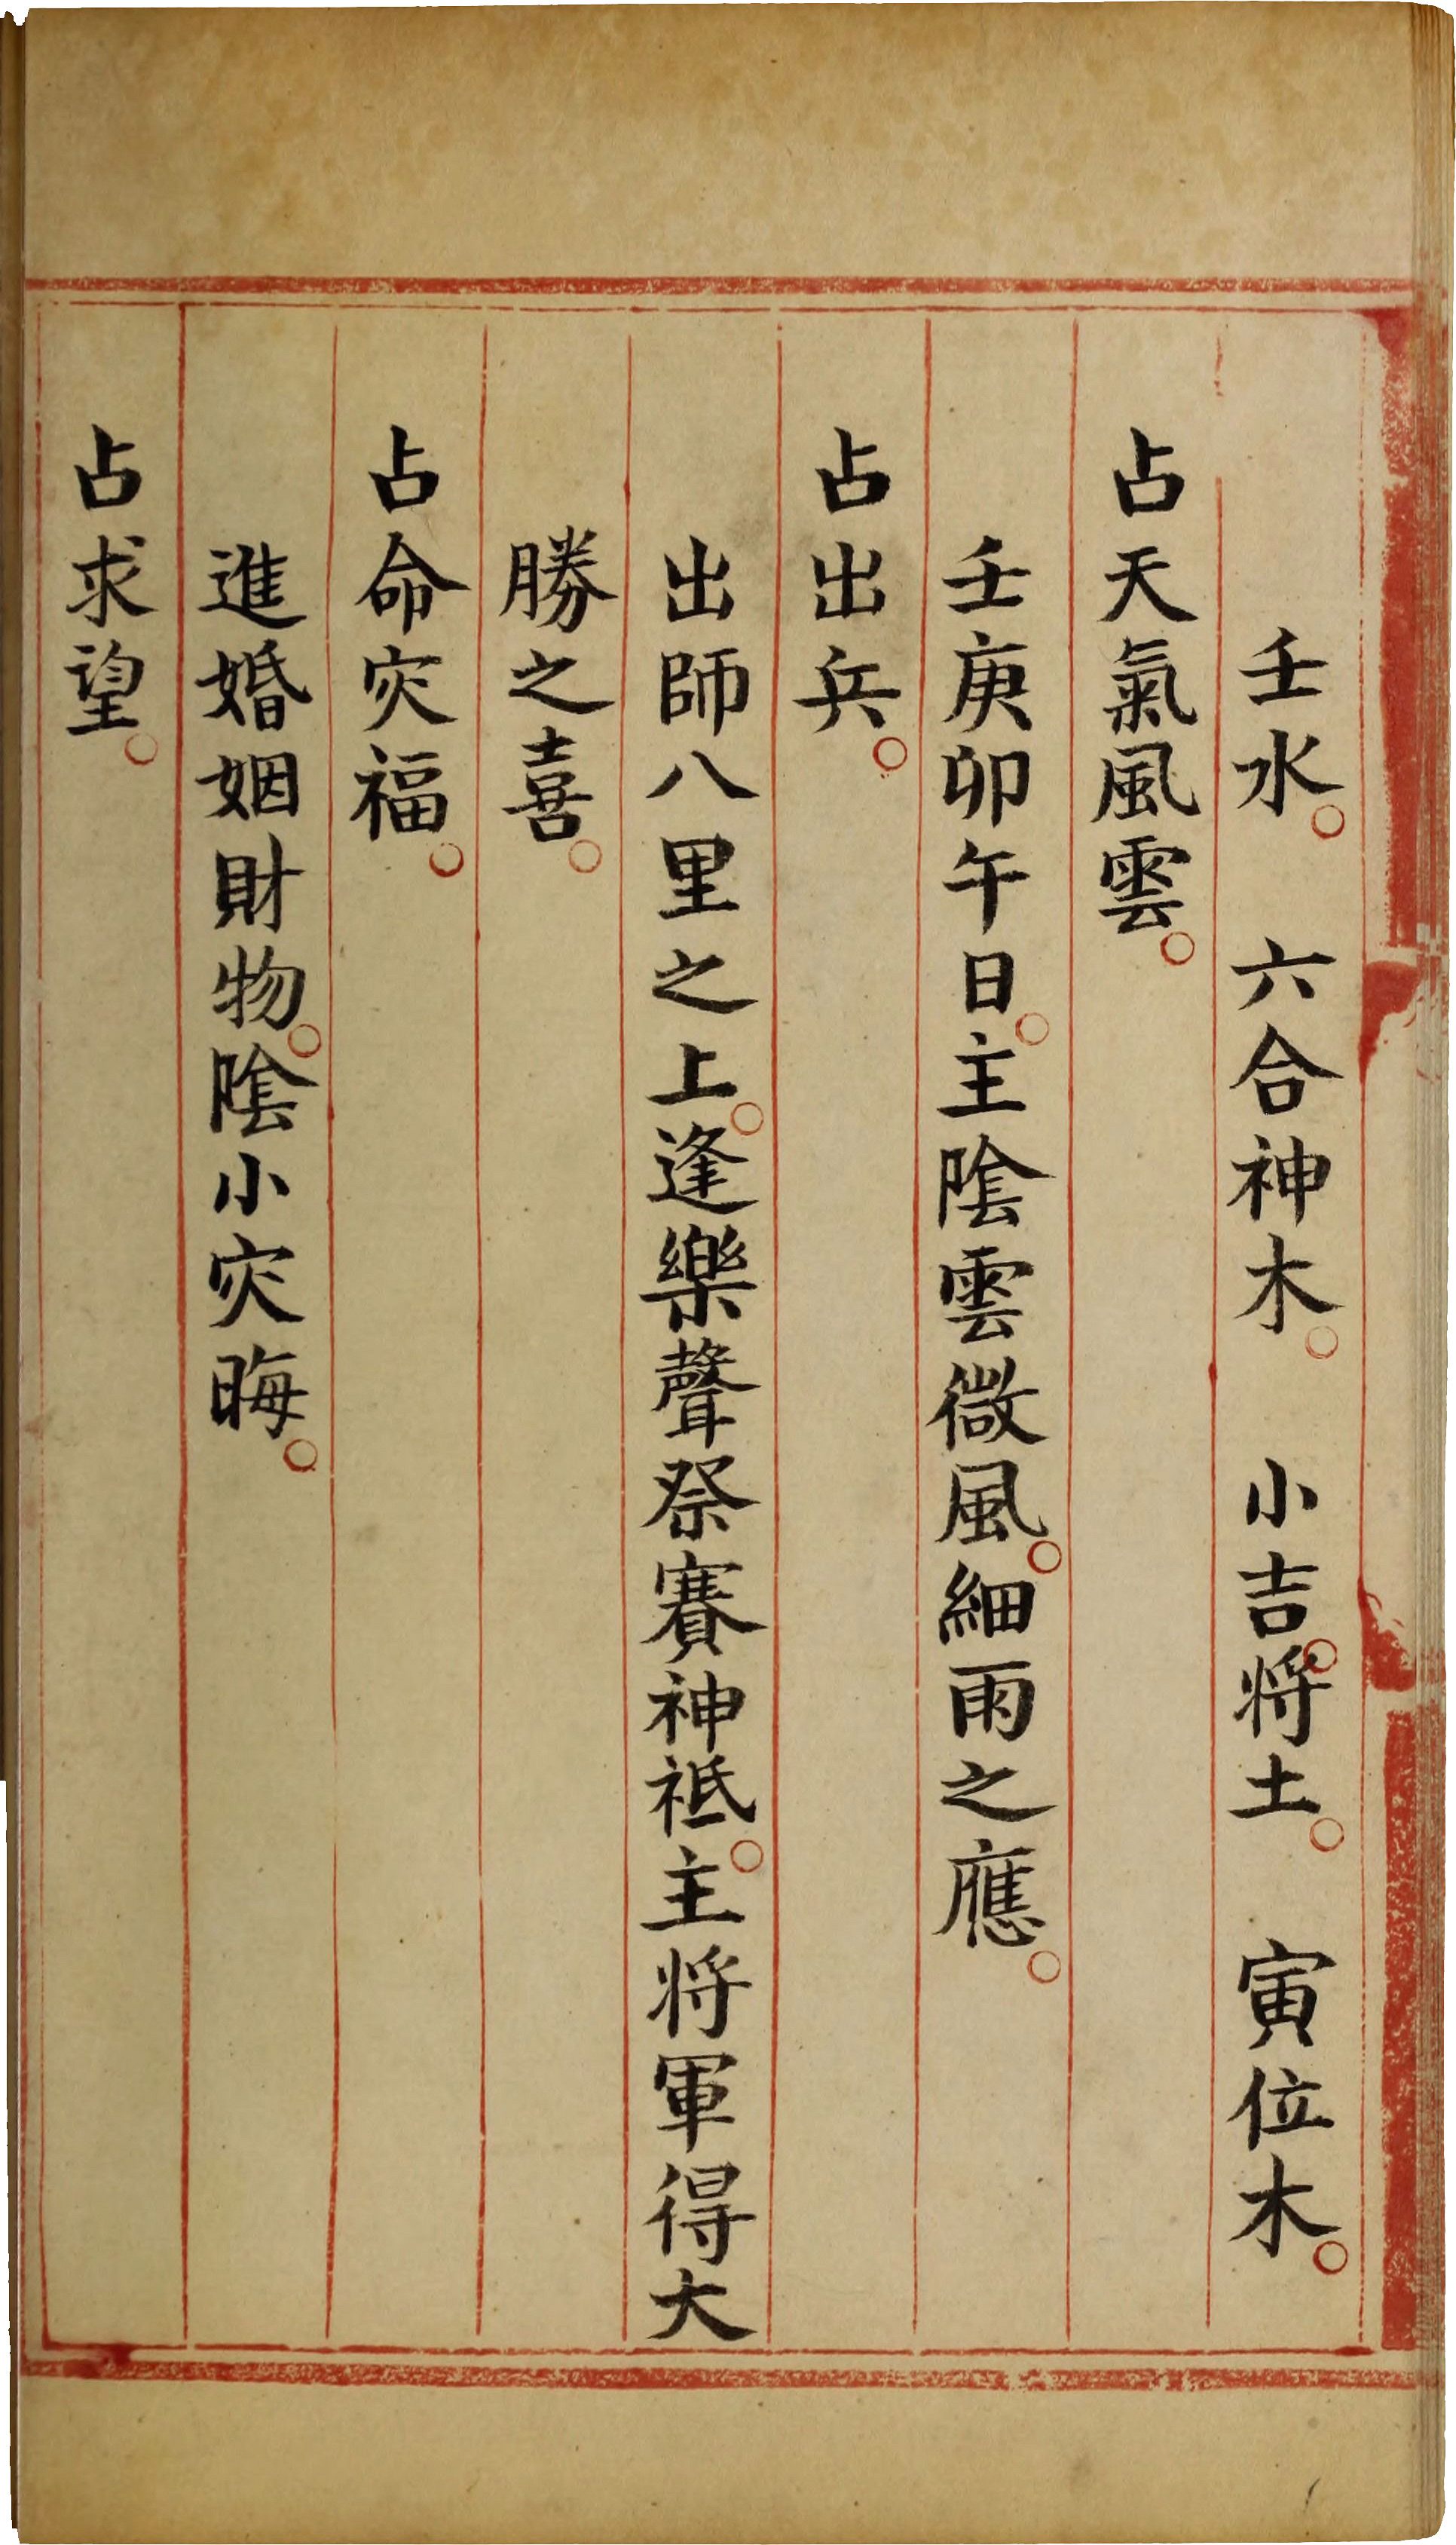 壬水。　六合神木。　小吉。将土。　寅位木。
占天氣風雲。
壬庚卯午日。主隂雲微風。細雨之應。
占出兵。
出師八里之上。逢樂聲祭賽神祗。主将軍得大
勝之喜。
占命灾福。
進婚姻財物。隂小灾晦。
占求望。